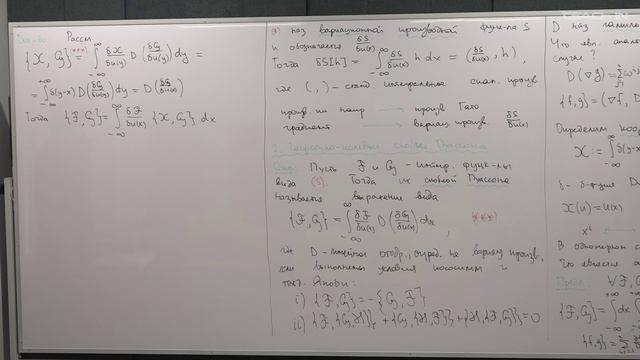 Док-во. Рассм
{X, G} (***)= ∫_{-∞}^{∞} δX/δu(y) D (δG/δu(y)) dy =
= ∫_{-∞}^{+∞} δ(y-x) D(δG/δu(y)) dy = D(δG/δu(x))
Тогда {F, G} = ∫_{-∞}^{∞} δF/δu(x) {X, G} dx
(*) наз вариационной производной функ-ла S
и обозначается δS/δu(x)
Тогда δS[h] = ∫_{-∞}^{∞} δS/δu(x) h dx = (δS/δu(x), h),
где ( , ) - станд. интегральное скал. произв
произв. по напр → произв Гато
градиент → вариац. произв. δS/δu(x)
2. Теоретико-полевые скобки Пуассона
Опр. Пусть F и G - интегр. функ-лы
вида (5). Тогда их скобкой Пуассона
называется выражение вида
{F, G} = ∫_{-∞}^{∞} δF/δu(x) D(δG/δu(x)) dx, (***)
где D - линейн отобр., опред. не вариац произв,
если выполнены условия кососимм и
тожд. Якоби:
i) {F, G} = -{G, F}
ii) {F, {G, H}} + {G, {H, F}} + {H, {F, G}} = 0
D наз
Что явл.
случае?
D(∇g) =
{f, g} = (∇f, D
Определим
X := ∫_{-∞} δ(y-x
X(u) = u(x)
В
Что
Предл. ∀F, G
{F, G} = ∫ dx
{f, g} =